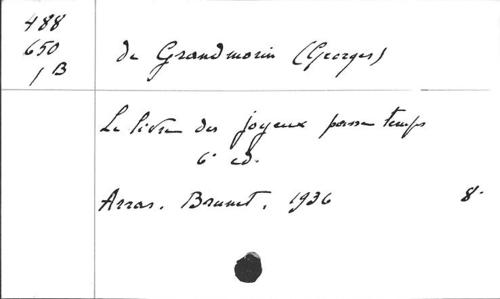 488
650
1 B
de Grandmorin (Georges)
Le livre des joyeux passe temps
6e ed.
Arras. Brunet. 1936 8°